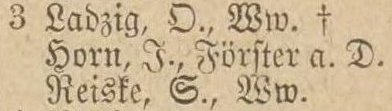 3 Ladzig, O., Ww. †
Horn, J., Förster a. D.
Reiske, S., Ww.